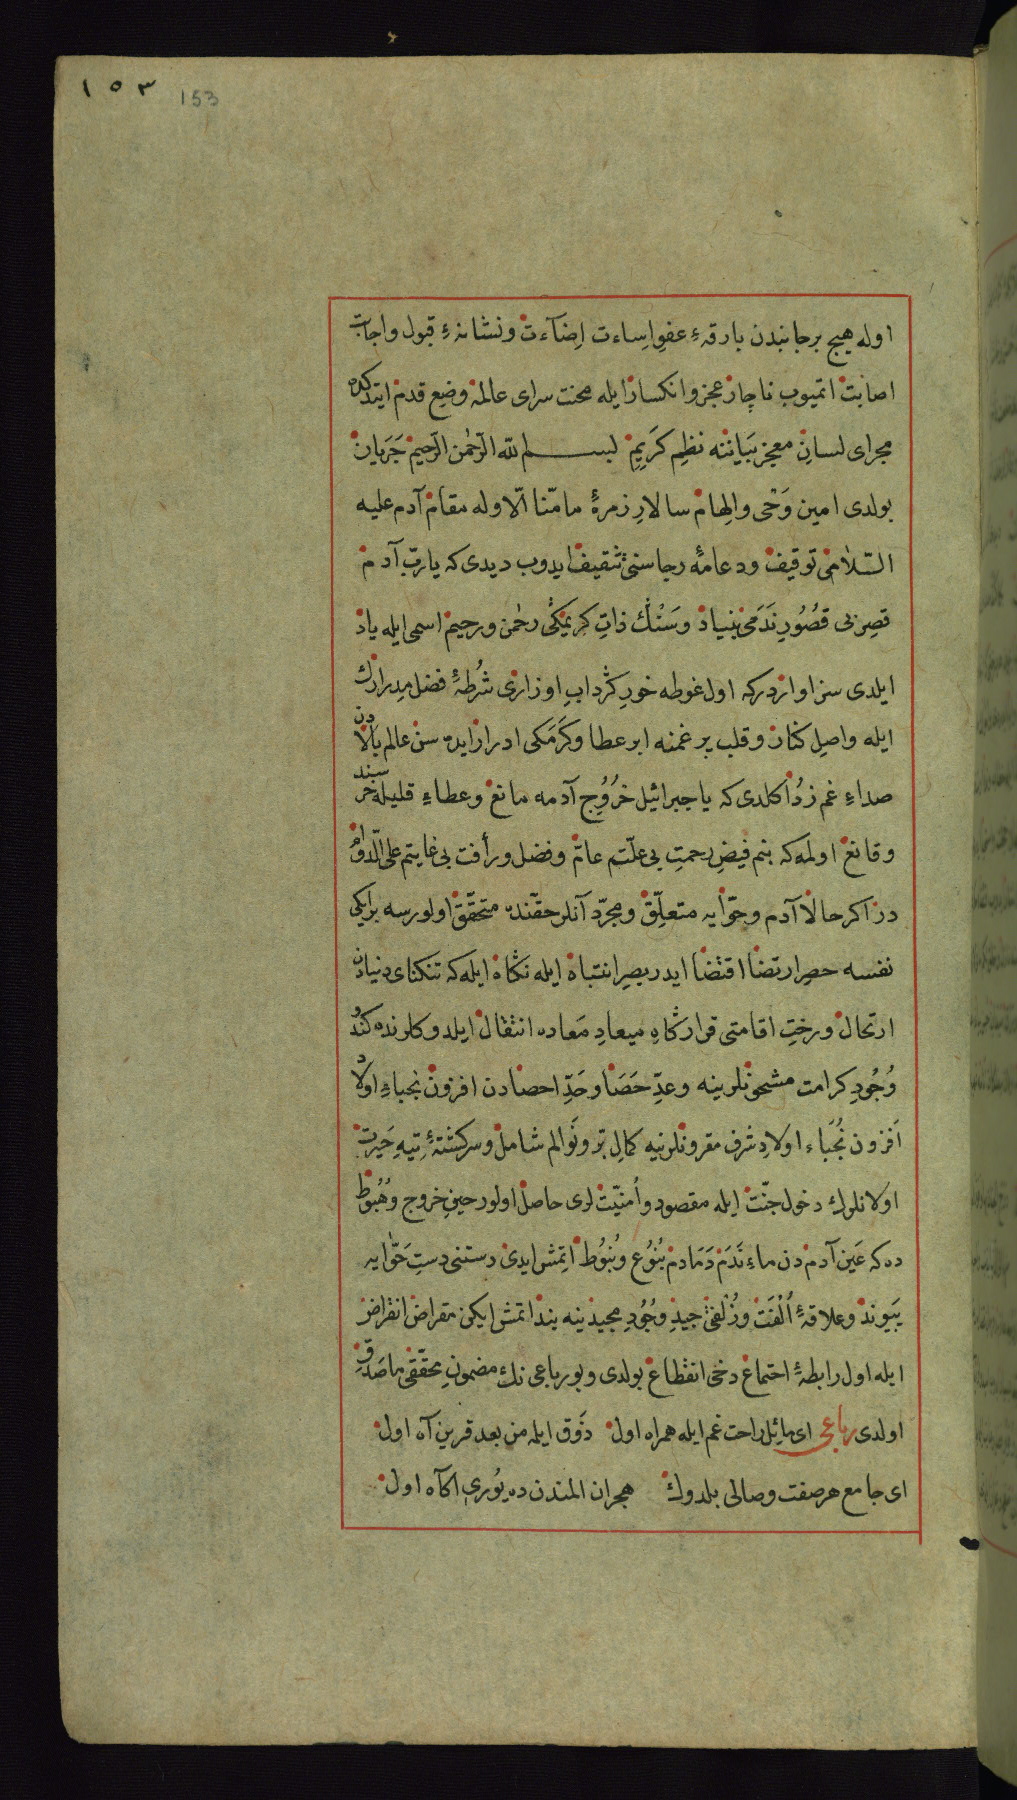 ١٥٣ 153
اوله هيچ برجانبدن بارقهٔ عفوِ اِساءت اِضآءت ونشانهٔ قبول واجابت
اصابت اتميوب ناچار عجز وانكسار ايله محنت سراى عالمه وضع قدم ايتدكده
مجراى لسانِ معجز بَياننه نظِم كَرِيمِ بسم الله الرّحمٰن الرّحيم جَرَيان
بولدى امين وَحْى والهام سالارِ زمرهٔ مامنّا الّا وله مقام آدم عليه
السّلامى توقيف ودعامهٔ رجاسنى تثقيف ايدوب ديدى كه يارب آدم
قصرِ بى قصُورِ نَدَمى بنياد وسَنُڭ ذاتِ كريمكى رحمٰن ورحيم اسمى ايله ياد
ايلدى سزاواردركه اول غوطه خورِ كرداب اوزارى شُرطهٔ فضل مدرارك
ايله واصل كنار وقلب پر غمنه ابر عطا وكَرَمكى ادرار ايده سن عالم بالادن
صداءِ غم زدُا كلدى كه ياجبرائيل خرُوُجِ آدمه مانع وعطاءِ قليله خرسند
وقانع اولمه كه بنم فيضِ رحمتِ بى علّتم عامّ وفضل ورأفت بى غايتم على الدّوام
در اكر حالا آدم وحوّايه متعلّق ومجرّد آنلر حقّنده متحقّق اولورسه بر ايكى
نفسه حصرِ ارتضا اقتضا ايدر بصرِ انتباه ايله نكاه ايله كه تنكناى دنيادن
ارتحال ورختِ اقامتى قراركاهِ ميعادِ مَعاده انتقال ايلدوكلرنده كندُو
وُجُودِ كرامت مشحونلرينه وعدِّ حَصَا وحَدِّ احصادن افزون نجباءِ اولاد
اَفزون نُجَباء اولادِ شرف مقرونلرينه كمالِ برّ ونَوالم شامل وسركشتهٔ تيهِ حَيرت
اولانلرك دخول جنّت ايله مقصود واُمنيّتلرى حاصل اولور حينِ خروج وهُبوُط
ده كه عَين آدم دن ماءِ نَدَم دَمَادم نُبُوُع ونُبُوُط اتمش ايدى دستنى دستِ حَوّايه
پَيوند وعلاقهٔ اُلْفَت وزُلفى جيدِ وجُودِ مجيدينه بند اتمش ايكن مقراضِ انقراض
ايله اول رابطهٔ اجتماع دخى انقطاع بولدى وبو رباعى نك مضمونِ محقّقى ماصَدَقِ
اولدى رباعى اى مائِل راحت غم ايله همراه اول ذَوق ايله من بعد قرينِ آه اول
اى جامع هر صفت وصالى بلدوك هجران المندن ده يُورى اكاه اول